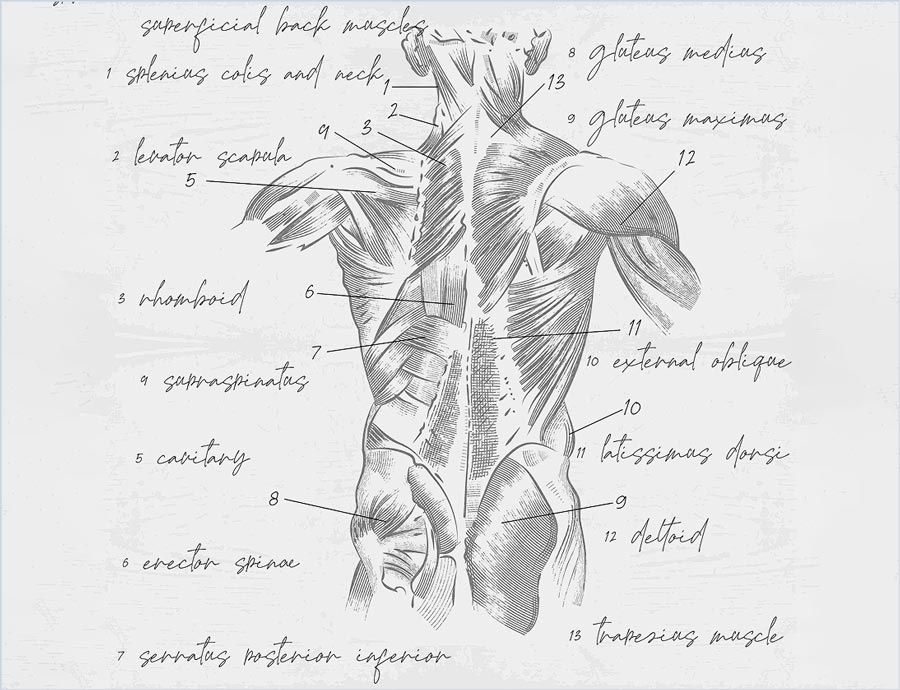 superficial back muscles
1 splenius colis and neck
2 levator scapula
3 rhomboid
9 supraspinatus
5 cavitary
6 erector spinae
7 serratus posterior inferior
8 gluteus medius
9 gluteus maximus
10 external oblique
11 latissimus dorsi
12 deltoid
13 trapezius muscle
1
2
3
9
5
6
7
8
13
12
11
10
9